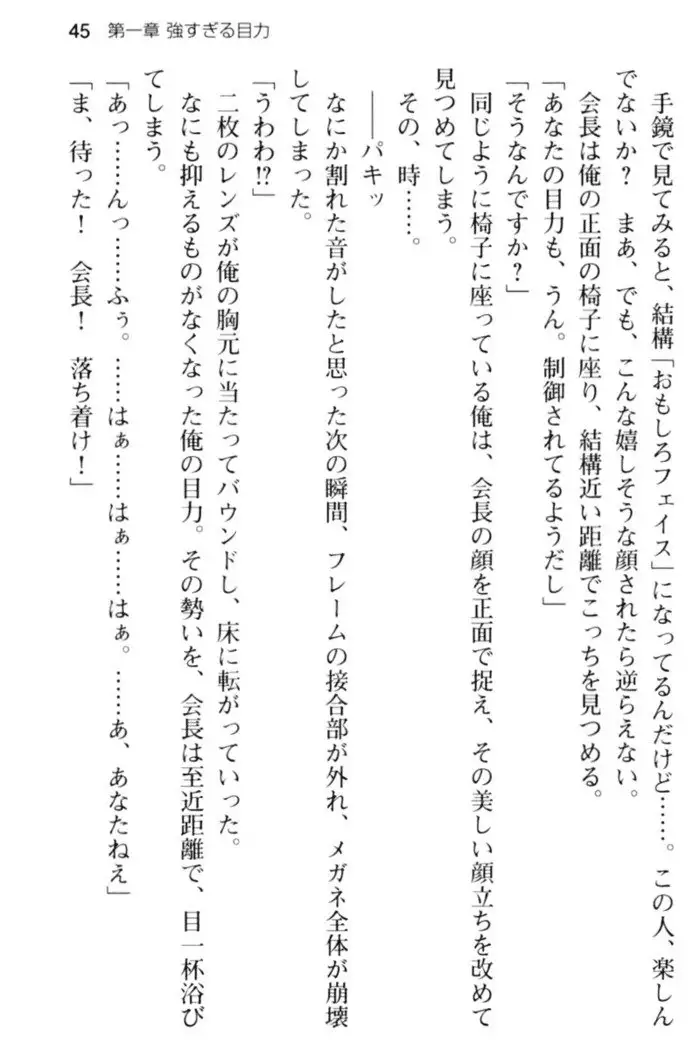 45 第一章 強すぎる目力
手鏡で見てみると、結構「おもしろフェイス」になってるんだけど……。この人、楽しん
でないか？　まあ、でも、こんな嬉しそうな顔されたら逆らえない。
会長は俺の正面の椅子に座り、結構近い距離でこっちを見つめる。
「あなたの目力も、うん。制御されてるようだし」
「そうなんですか？」
同じように椅子に座っている俺は、会長の顔を正面で捉え、その美しい顔立ちを改めて
見つめてしまう。
その、時……。
――パキッ
なにか割れた音がしたと思った次の瞬間、フレームの接合部が外れ、メガネ全体が崩壊
してしまった。
「うわわ!?」
二枚のレンズが俺の胸元に当たってバウンドし、床に転がっていった。
なにも抑えるものがなくなった俺の目力。その勢いを、会長は至近距離で、目一杯浴び
てしまう。
「あっ……んっ……ふぅ。……はぁ……はぁ……はぁ。……あ、あなたねえ」
「ま、待った！　会長！　落ち着け！」